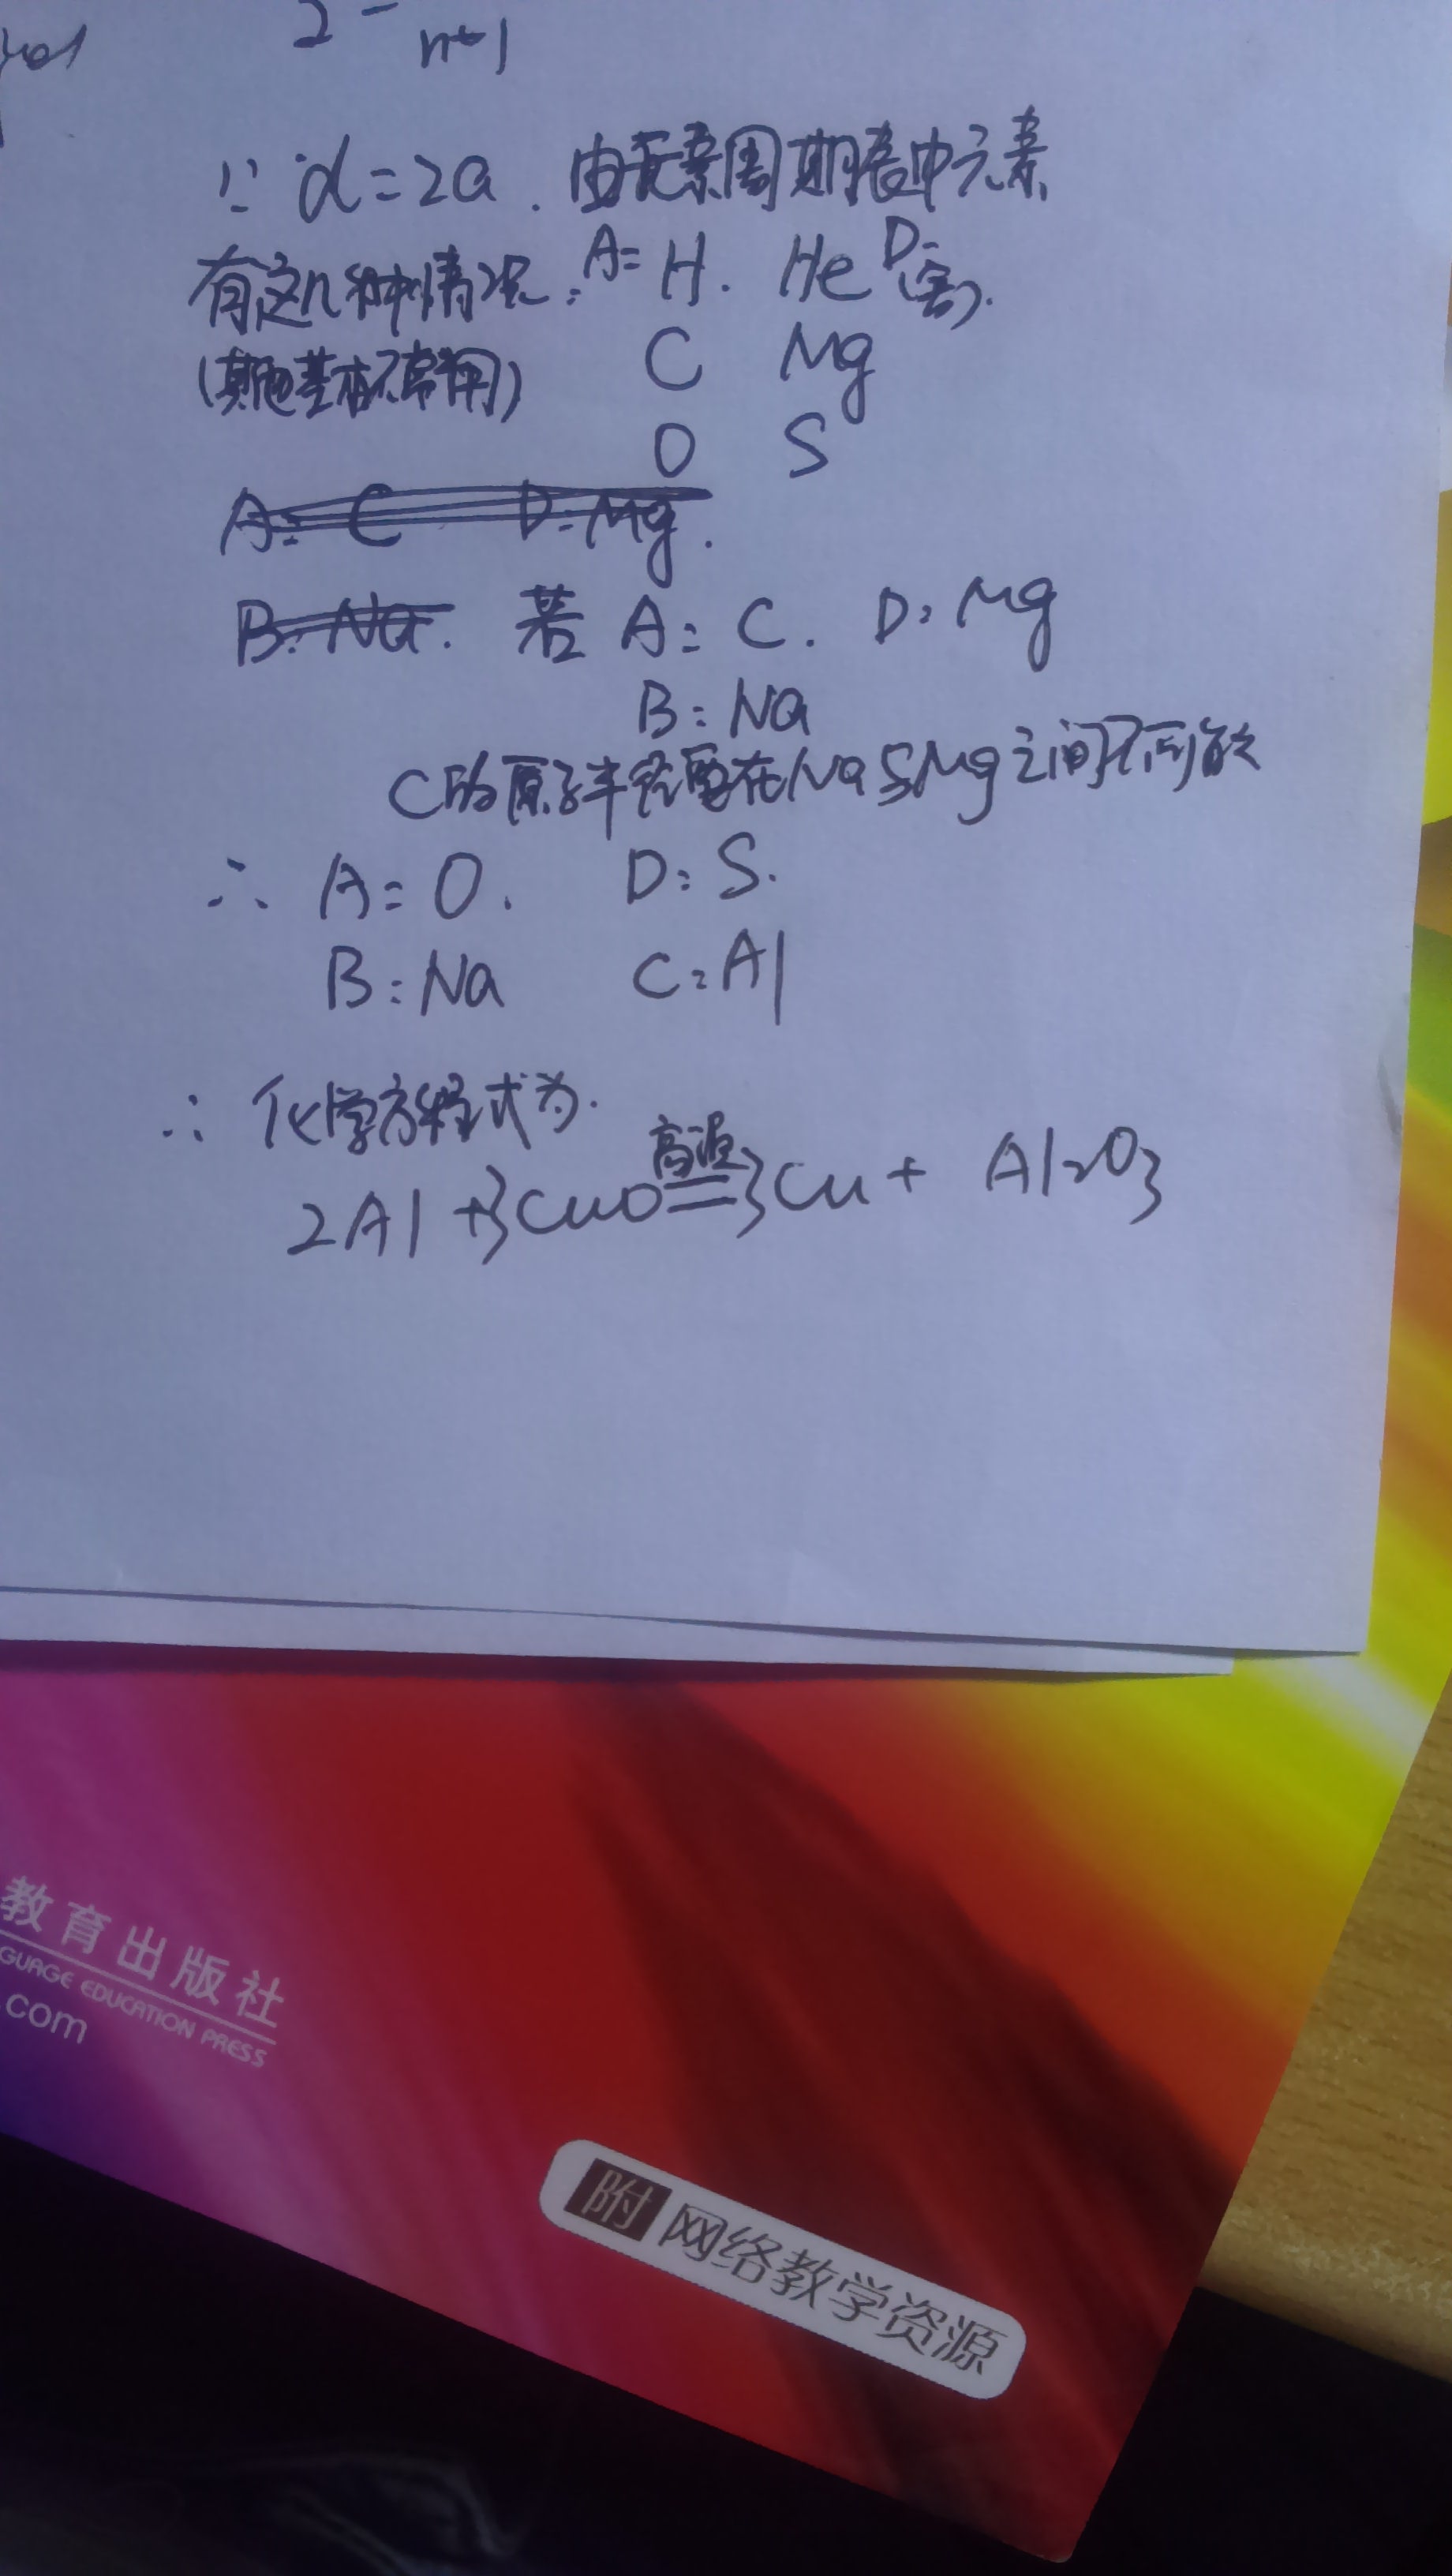 2 - n+1
∵ d=2a . 由元素周期表中元素
有这几种情况: A= H. He D=(害).
(其他基本不常用) C Mg
O S
A= C D=Mg.
B: Na. 若 A: C. D: Mg
B: Na
C的原子半径要在Na与Mg之间不可能
∴ A= O. D: S.
B: Na C: Al
∴ 化学方程式为.
2Al + 3CuO 高温 = 3Cu + Al₂O₃
教育出版社
GUAGE EDUCATION PRESS
.com
附 网络教学资源